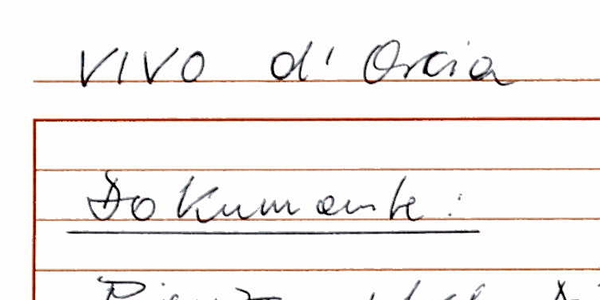 VIVO d'Orcia
Dokumente: